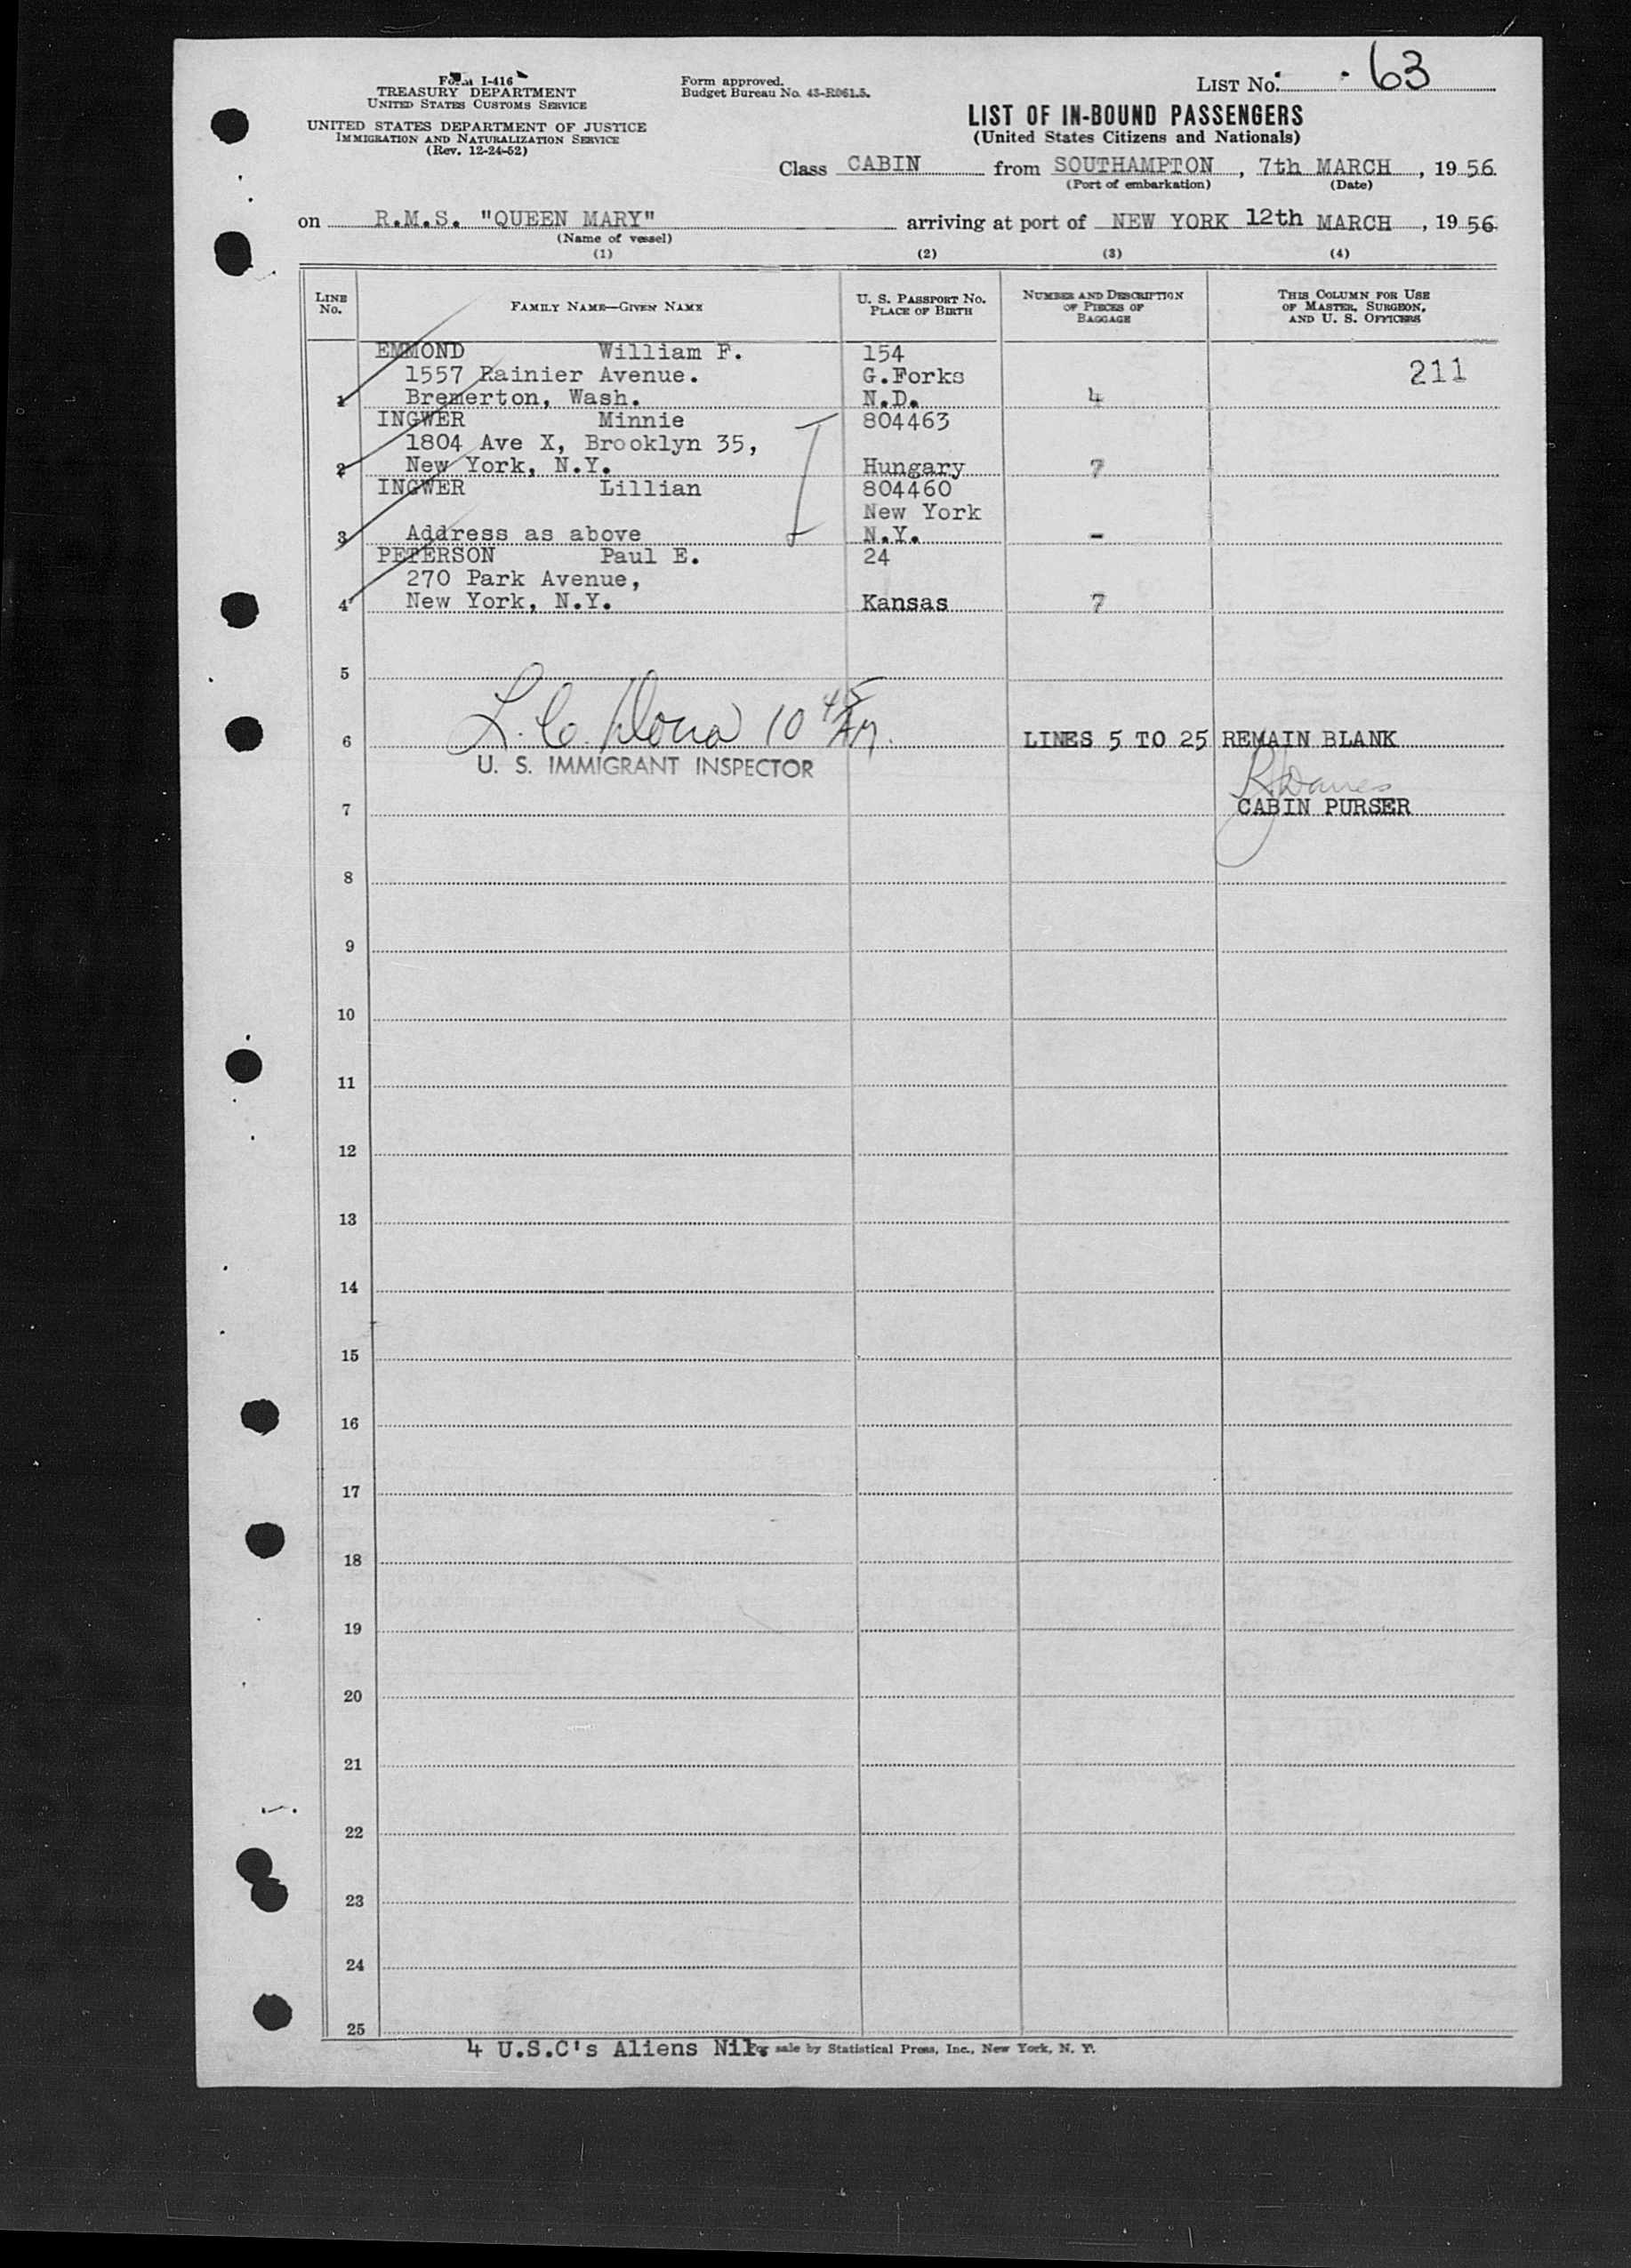 Form I-416
TREASURY DEPARTMENT
UNITED STATES CUSTOMS SERVICE
UNITED STATES DEPARTMENT OF JUSTICE
IMMIGRATION AND NATURALIZATION SERVICE
(Rev. 12-24-52)
Form approved.
Budget Bureau No. 43-R061.5.
LIST No. 63
LIST OF IN-BOUND PASSENGERS
(United States Citizens and Nationals)
Class CABIN from SOUTHAMPTON, 7th MARCH, 1956
(Port of embarkation) (Date)
on R.M.S. "QUEEN MARY" arriving at port of NEW YORK 12th MARCH, 1956
(Name of vessel)
(1) (2) (3) (4)
LINE No. FAMILY NAME—GIVEN NAME U. S. PASSPORT No. PLACE OF BIRTH NUMBER AND DESCRIPTION OF PIECES OF BAGGAGE THIS COLUMN FOR USE OF MASTER, SURGEON, AND U. S. OFFICERS
EMMOND William F. 154
1557 Rainier Avenue. G.Forks 211
1 Bremerton, Wash. N.D. 4
INGWER Minnie 804463
1804 Ave X, Brooklyn 35,
2 New York, N.Y. Hungary 7
INGWER Lillian 804460
New York
3 Address as above N.Y. -
PETERSON Paul E. 24
270 Park Avenue,
4 New York, N.Y. Kansas 7
5
L. C. 10 45 AM.
6 LINES 5 TO 25 REMAIN BLANK
U. S. IMMIGRANT INSPECTOR
7 CABIN PURSER
8
9
10
11
12
13
14
15
16
17
18
19
20
21
22
23
24
25
4 U.S.C's Aliens Nil. For sale by Statistical Press, Inc., New York, N. Y.